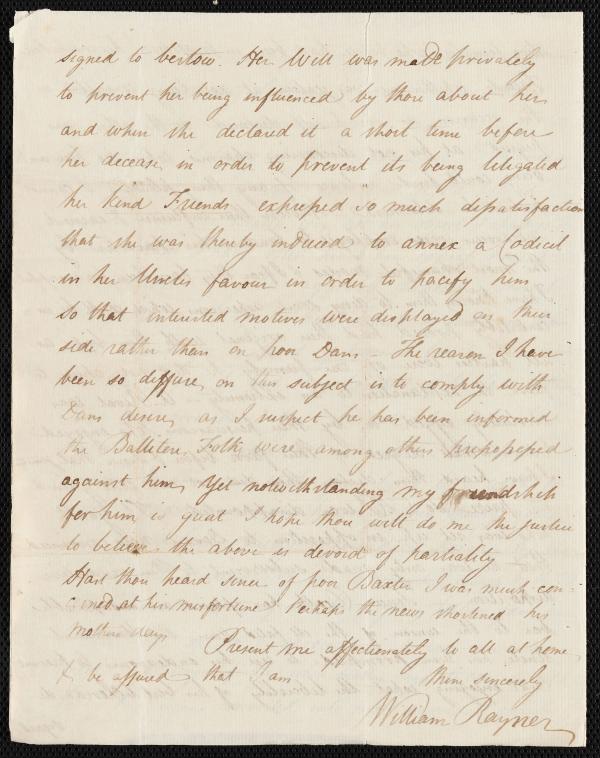 signed to bestow. Her Will was made privately
to prevent her being influenced by those about her
and when she declared it a short time before
her decease, in order to prevent its being litigated
her kind "Friends" expressed so much dissatisfaction
that she was thereby induced to annex a Codicil
in her Uncles favour in order to pacify him
so that interested motives were displayed on their
side rather than on poor Dans – The reason I have
been so diffuse, on this subject is to comply with
Dans desire, as I suspect he has been informed
the Balliton Folk were among others prepossessed
against him, Yet notwithstanding my friendship
for him is great I hope thou will do me the justice
to believe the above is devoid of partiality –
Hast thou heard since of poor Baxter I was much con-
cerned at his misfortune Perhaps the news shortened his
mothers days
Present me affectionately to all at home
& be assured that I am thine sincerely
William Rayner